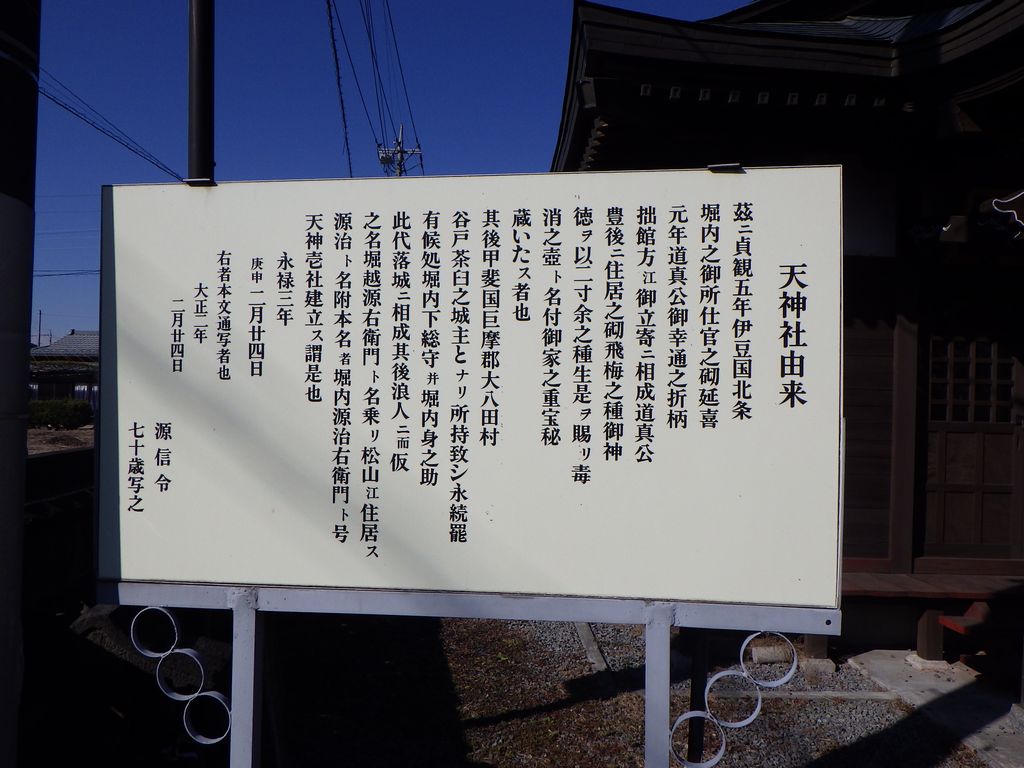 天神社由来
茲ニ貞観五年伊豆国北条
堀内之御所仕官之砌延喜
元年道真公御幸通之折柄
拙館方江御立寄ニ相成道真公
豊後ニ住居之砌飛梅之種御神
徳ヲ以二寸余之種生是ヲ賜リ毒
消之壺ト名付御家之重宝秘
蔵いたス者也
其後甲斐国巨摩郡大八田村
谷戸茶臼之城主とナリ所持致シ永続罷
有候処堀内下総守并堀内身之助
此代落城ニ相成其後浪人ニ而仮
之名堀越源右衛門ト名乗リ松山江住居ス
源治ト名附本名者堀内源治右衛門ト号
天神壱社建立ス謂是也
永禄三年
庚申二月廿四日
右者本文通写者也
大正二年
二月廿四日
源信令
七十歳写之